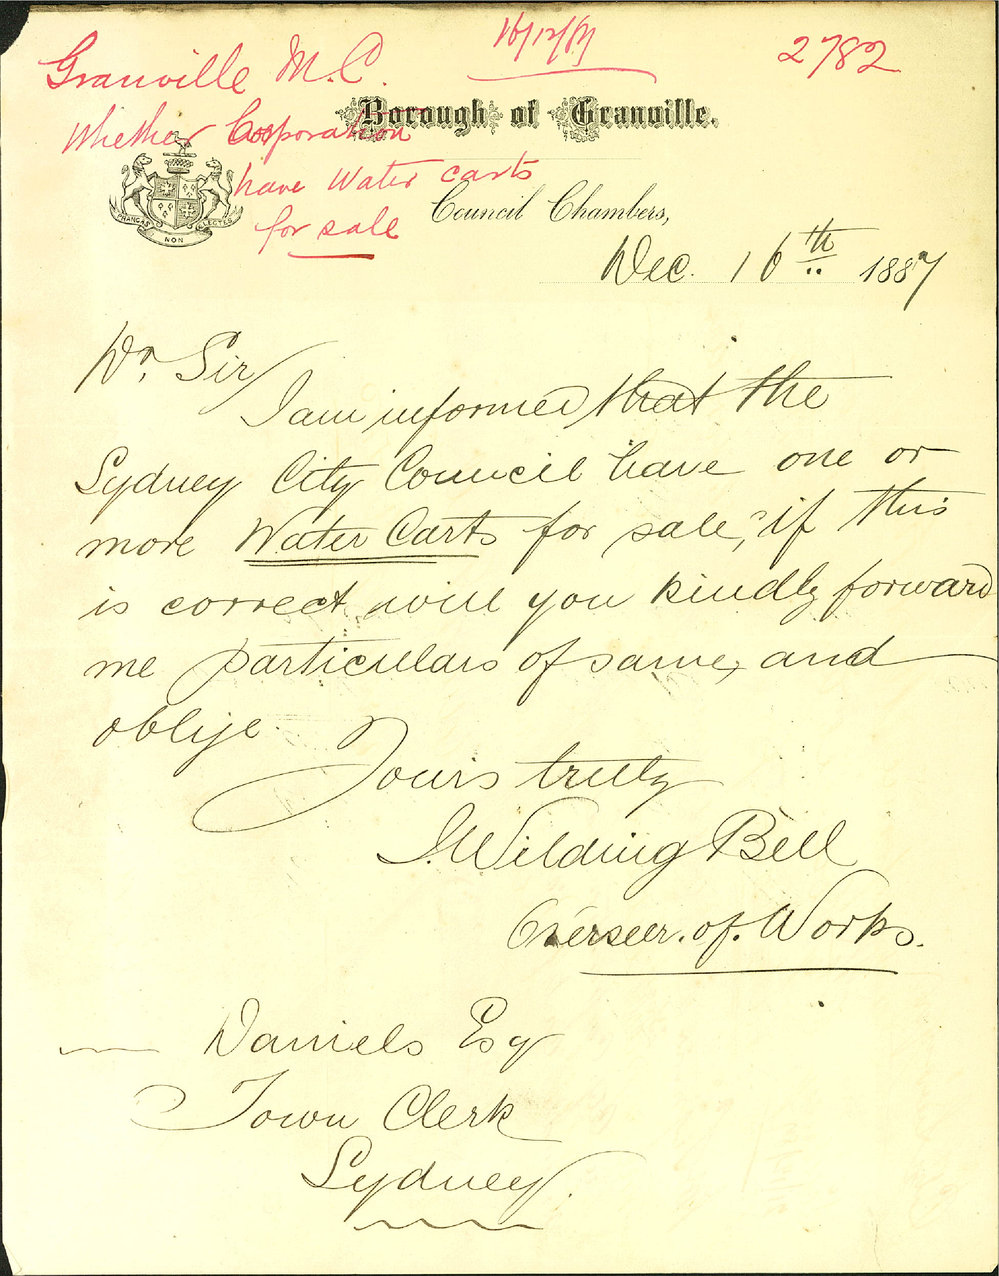 16/12/87
2782
Granville M.C.
Whether Corporation
have Water carts
for sale
Borough of Granville.
FRANGAS NON FLECTES
Council Chambers,
Dec. 16th 1887
Dr. Sir
I am informed that the
Sydney City Council have one or
more Water Carts for sale, if this
is correct, will you kindly forward
me particulars of same, and
oblige.
Yours truly
J. Wilding Bell
Overseer. of. Works.
Daniels Esq
Town Clerk
Sydney.